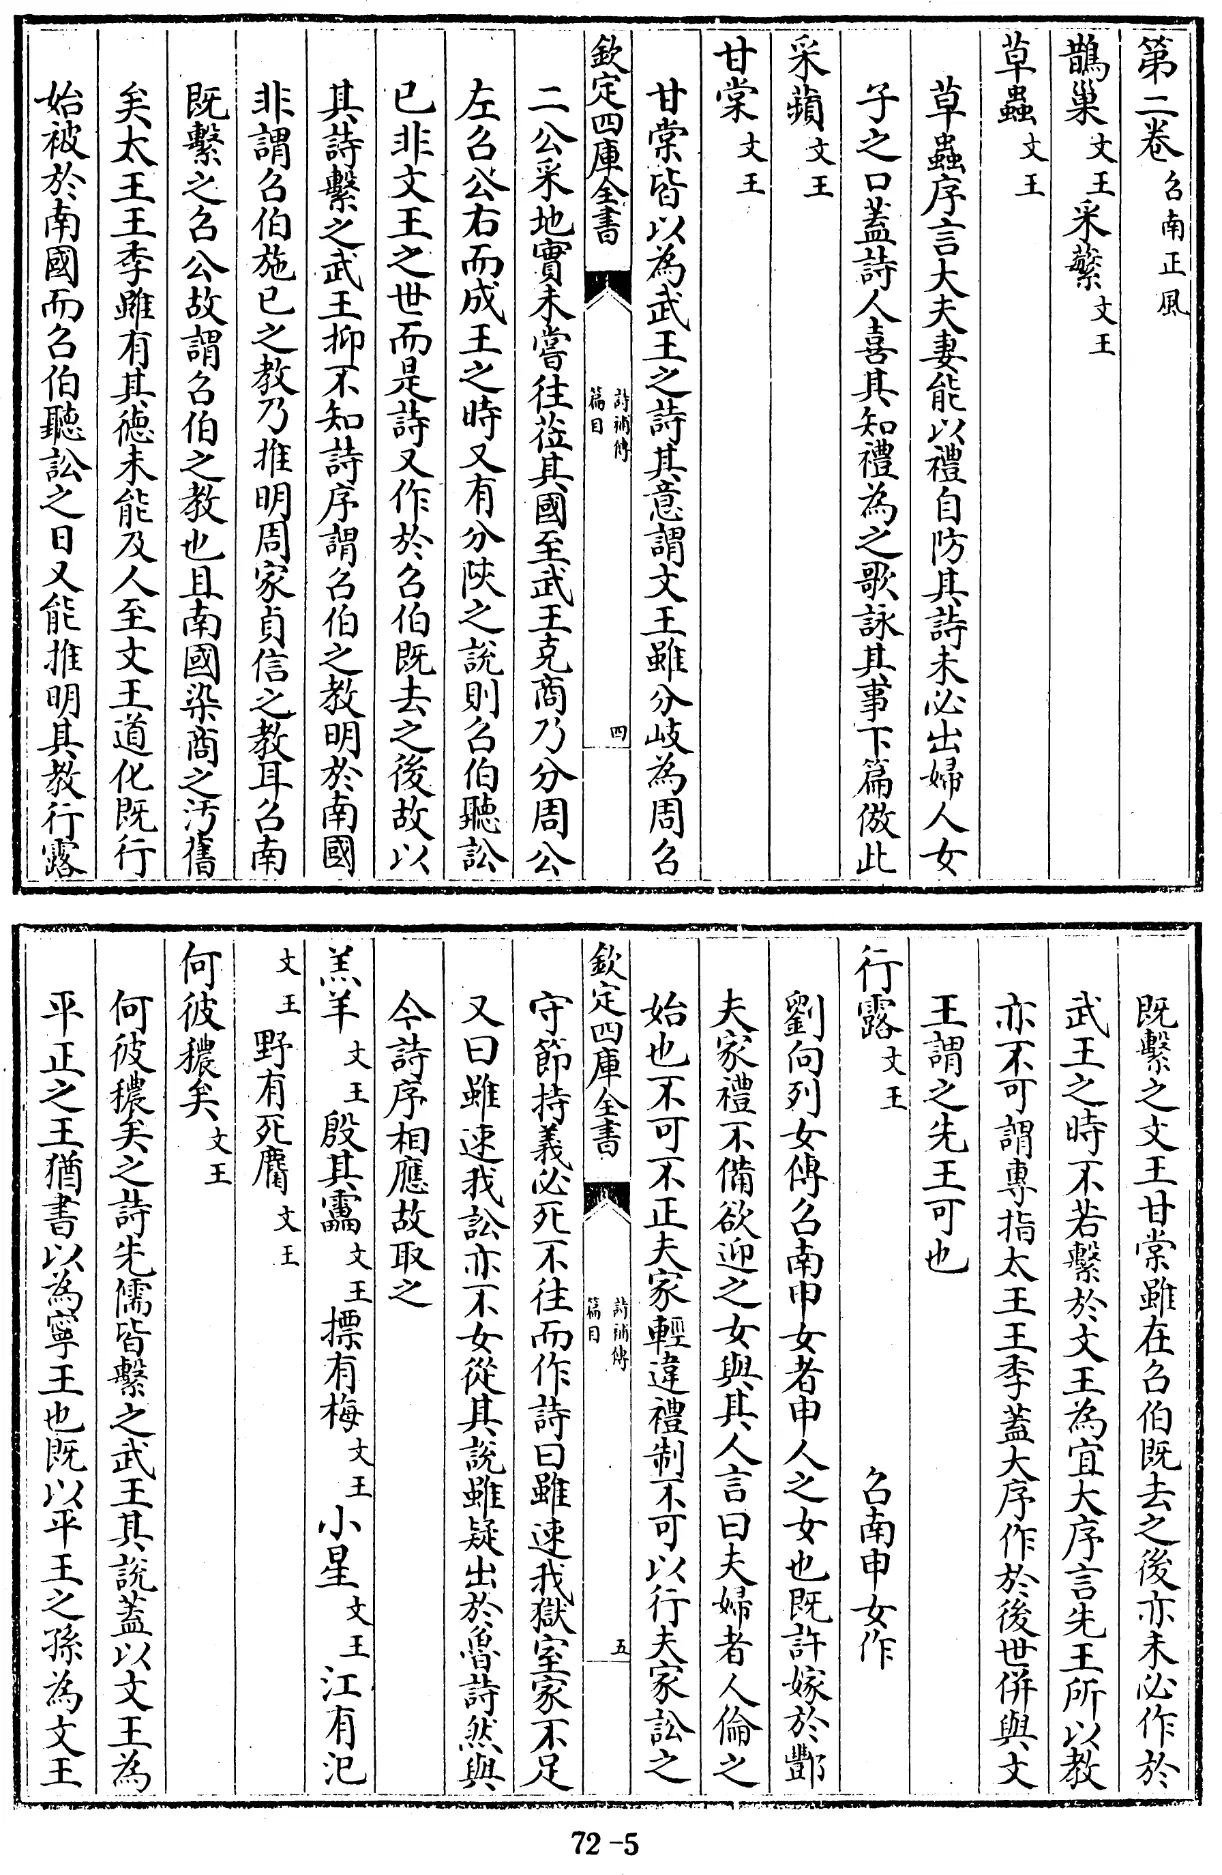 第二卷 召南正風
鵲巢 文王 采蘩 文王
草蟲 文王
草蟲序言大夫妻能以禮自防其詩未必出婦人女
子之口蓋詩人喜其知禮為之歌詠其事下篇倣此
采蘋 文王
甘棠 文王
甘棠皆以為武王之詩其意謂文王雖分岐為周召
欽定四庫全書 詩補傳 篇目 四
二公采地實未嘗往蒞其國至武王克商乃分周公
左召公右而成王之時又有分陜之說則召伯聽訟
已非文王之世而是詩又作於召伯既去之後故以
其詩繫之武王抑不知詩序謂召伯之教明於南國
非謂召伯施已之教乃推明周家貞信之教耳召南
既繫之召公故謂召伯之教也且南國染商之汚舊
矣太王王季雖有其德未能及人至文王道化既行
始被於南國而召伯聽訟之日又能推明其教行露
既繫之文王甘棠雖在召伯既去之後亦未必作於
武王之時不若繫於文王為宜大序言先王所以教
亦不可謂專指太王王季蓋大序作於後世併與文
王謂之先王可也
行露 文王 召南申女作
劉向列女傳召南申女者申人之女也既許嫁於酆
夫家禮不備欲迎之女與其人言曰夫婦者人倫之
始也不可不正夫家輕違禮制不可以行夫家訟之
欽定四庫全書 詩補傳 篇目 五
守節持義必死不往而作詩曰雖速我獄室家不足
又曰雖速我訟亦不女從其說雖疑出於魯詩然與
今詩序相應故取之
羔羊 文王 殷其靁 文王 摽有梅 文王 小星 文王 江有汜
文王 野有死麕 文王
何彼穠矣 文王
何彼穠矣之詩先儒皆繫之武王其說蓋以文王為
平正之王猶書以為寧王也既以平王之孫為文王
72-5